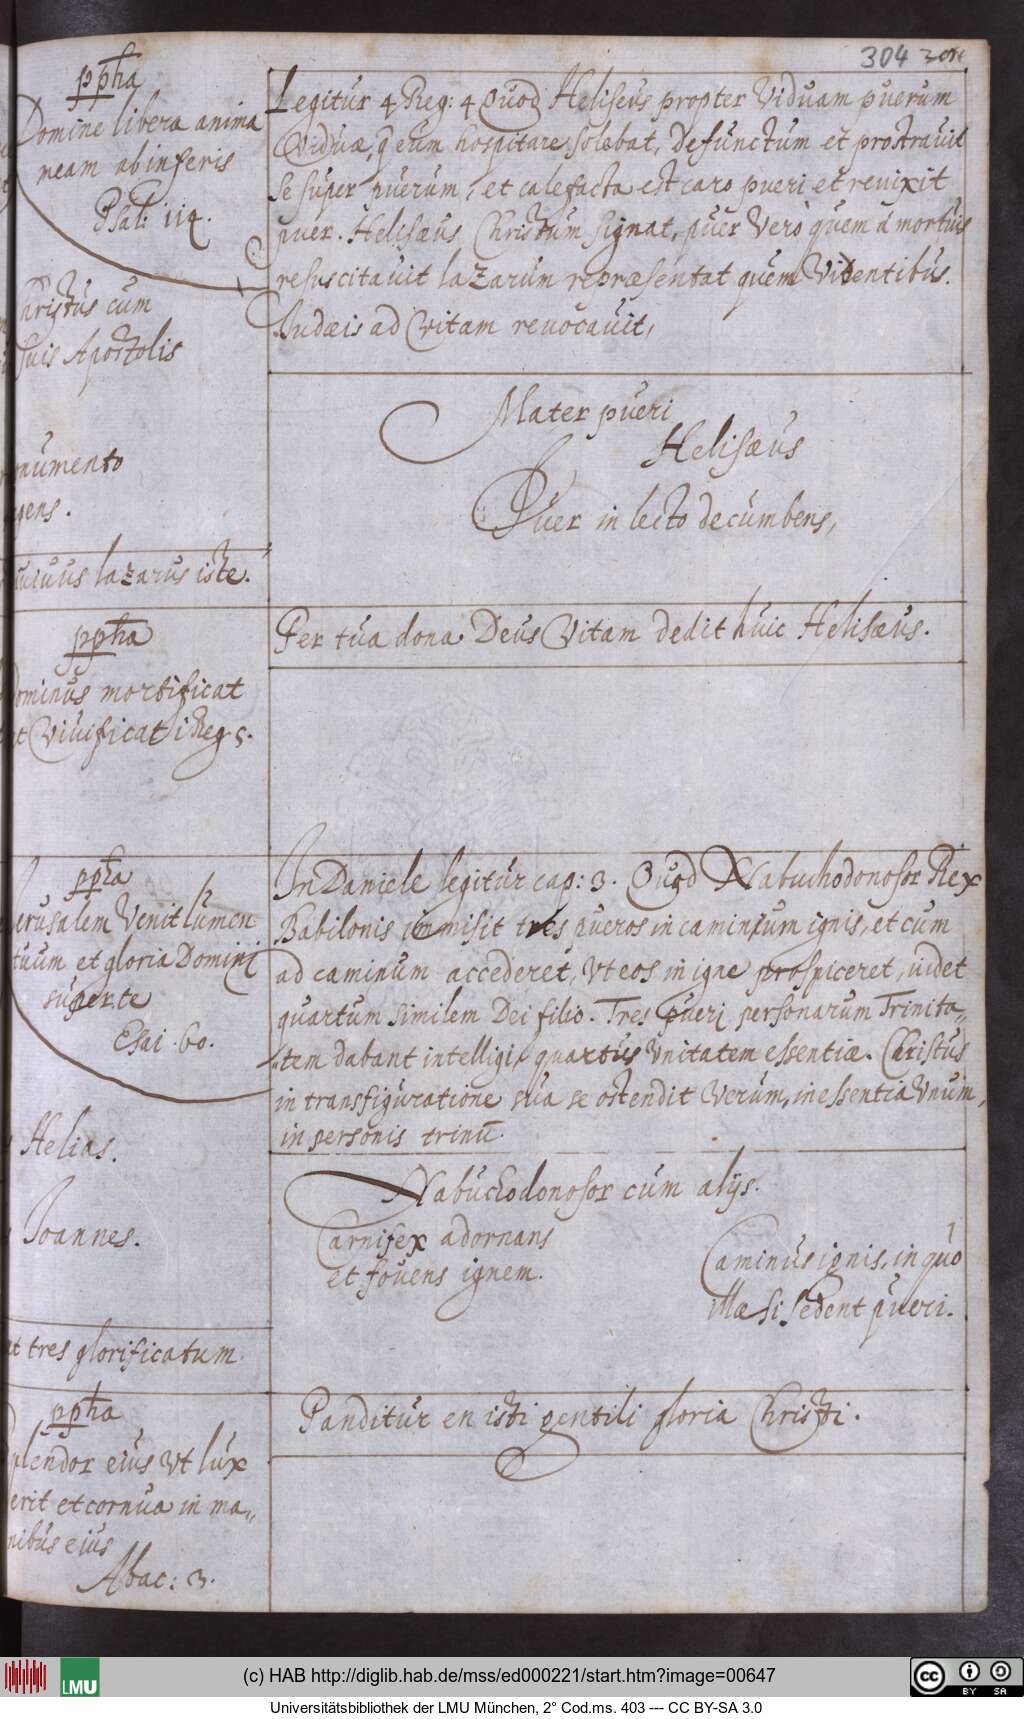 304
ppha
Domine libera anima
meam ab inferis
Psal: 114.
Christus cum
suis Apostolis
numento
gens.
uiuus lazarus iste.
ppha
Dominus mortificat
et Viuificat 1 Reg 5.
ppha
Jerusalem Venit lumen
tuum et gloria Domini
super te
Esai. 60.
Helias.
Joannes.
et tres glorificatum.
ppha
Splendor eius Vt lux
erit et cornua in ma„
nibus eius
Abac: 3.
Legitur 4 Reg: 4 Quod Heliseus propter Viduam puerum
Viduæ, q eum hospitare solebat, defunctum et prostrauit
Se super puerum, et calefacta est caro pueri et reuixit
puer. Helisæus Christum signat, puer Verò quem á mortuis
resuscitauit lazarum repræsentat quem Videntibus.
Judæis ad Vitam reuocauit,
Mater pueri
Helisæus
Puer in lecto decumbens,
Per tua dona Deus Vitam dedit huic Helisæus.
In Daniele legitur cap: 3. Quod Nabuchodonosor Rex
Babilonis immisit tres pueros in caminum ignis, et cum
ad caminum accederet, Vt eos in igne prospiceret, uidet
quartum similem Dei filio. Tres pueri personarum Trinita„
„tem dabant intelligi, quartus Vnitatem essentiæ. Christus
in transfiguratione sua se ostendit Verum, in essentia Vnum,
in personis trinū.
Nabuchodonosor cum alijs.
Carnifex adornans
et fouens ignem.
Caminus ignis, in quo
illæsi sedent pueri.
Panditur en isti gentili gloria Christi.
LMU
(c) HAB http://diglib.hab.de/mss/ed000221/start.htm?image=00647
cc BY SA
Universitätsbibliothek der LMU München, 2° Cod.ms. 403 --- CC BY-SA 3.0